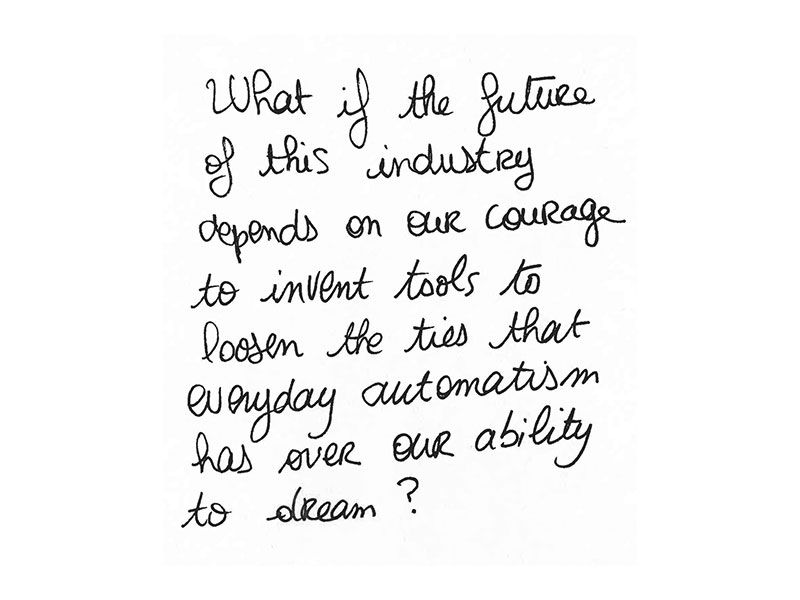 What if the future
of this industry
depends on our courage
to invent tools to
loosen the ties that
everyday automatism
has over our ability
to dream ?